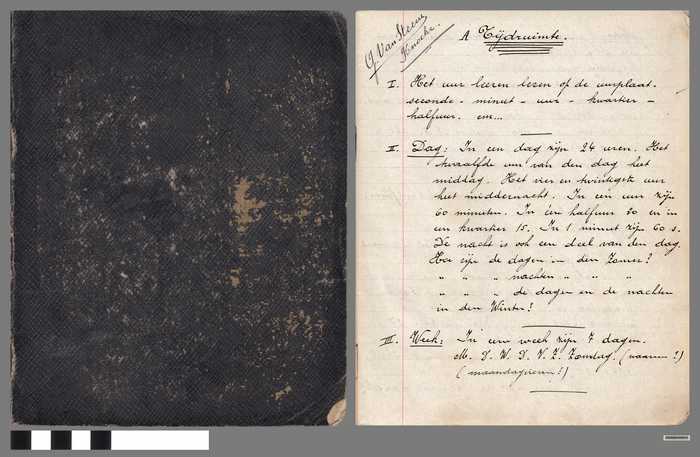 J. Van Steene
Knocke.
A Tijdruimte.
I. Het uur leeren lezen op de uurplaat.
seconde - minut - uur - kwartier -
halfuur. enz...
II. Dag: In een dag zijn 24 uren. Het
twaalfde uur van den dag heet
middag. Het vier en twintigste uur
heet middernacht. In één uur zijn
60 minuten. In één halfuur 30 en in
een kwartier 15. In 1 minut zijn 60 s.
De nacht is ook een deel van den dag.
Hoe zijn de dagen in den Zomer?
" " " nachten " " "
" " " de dagen en de nachten
in den Winter?
III. Week: In een week zijn 7 dagen.
M. D. W. D. V. Z. Zondag. (waarom?)
(maandagvieren?)